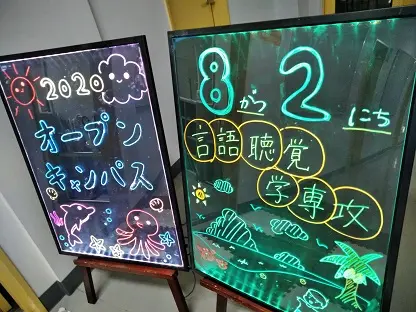 2020
オープン
キャンパス
8がつ2にち
言語聴覚
学専攻